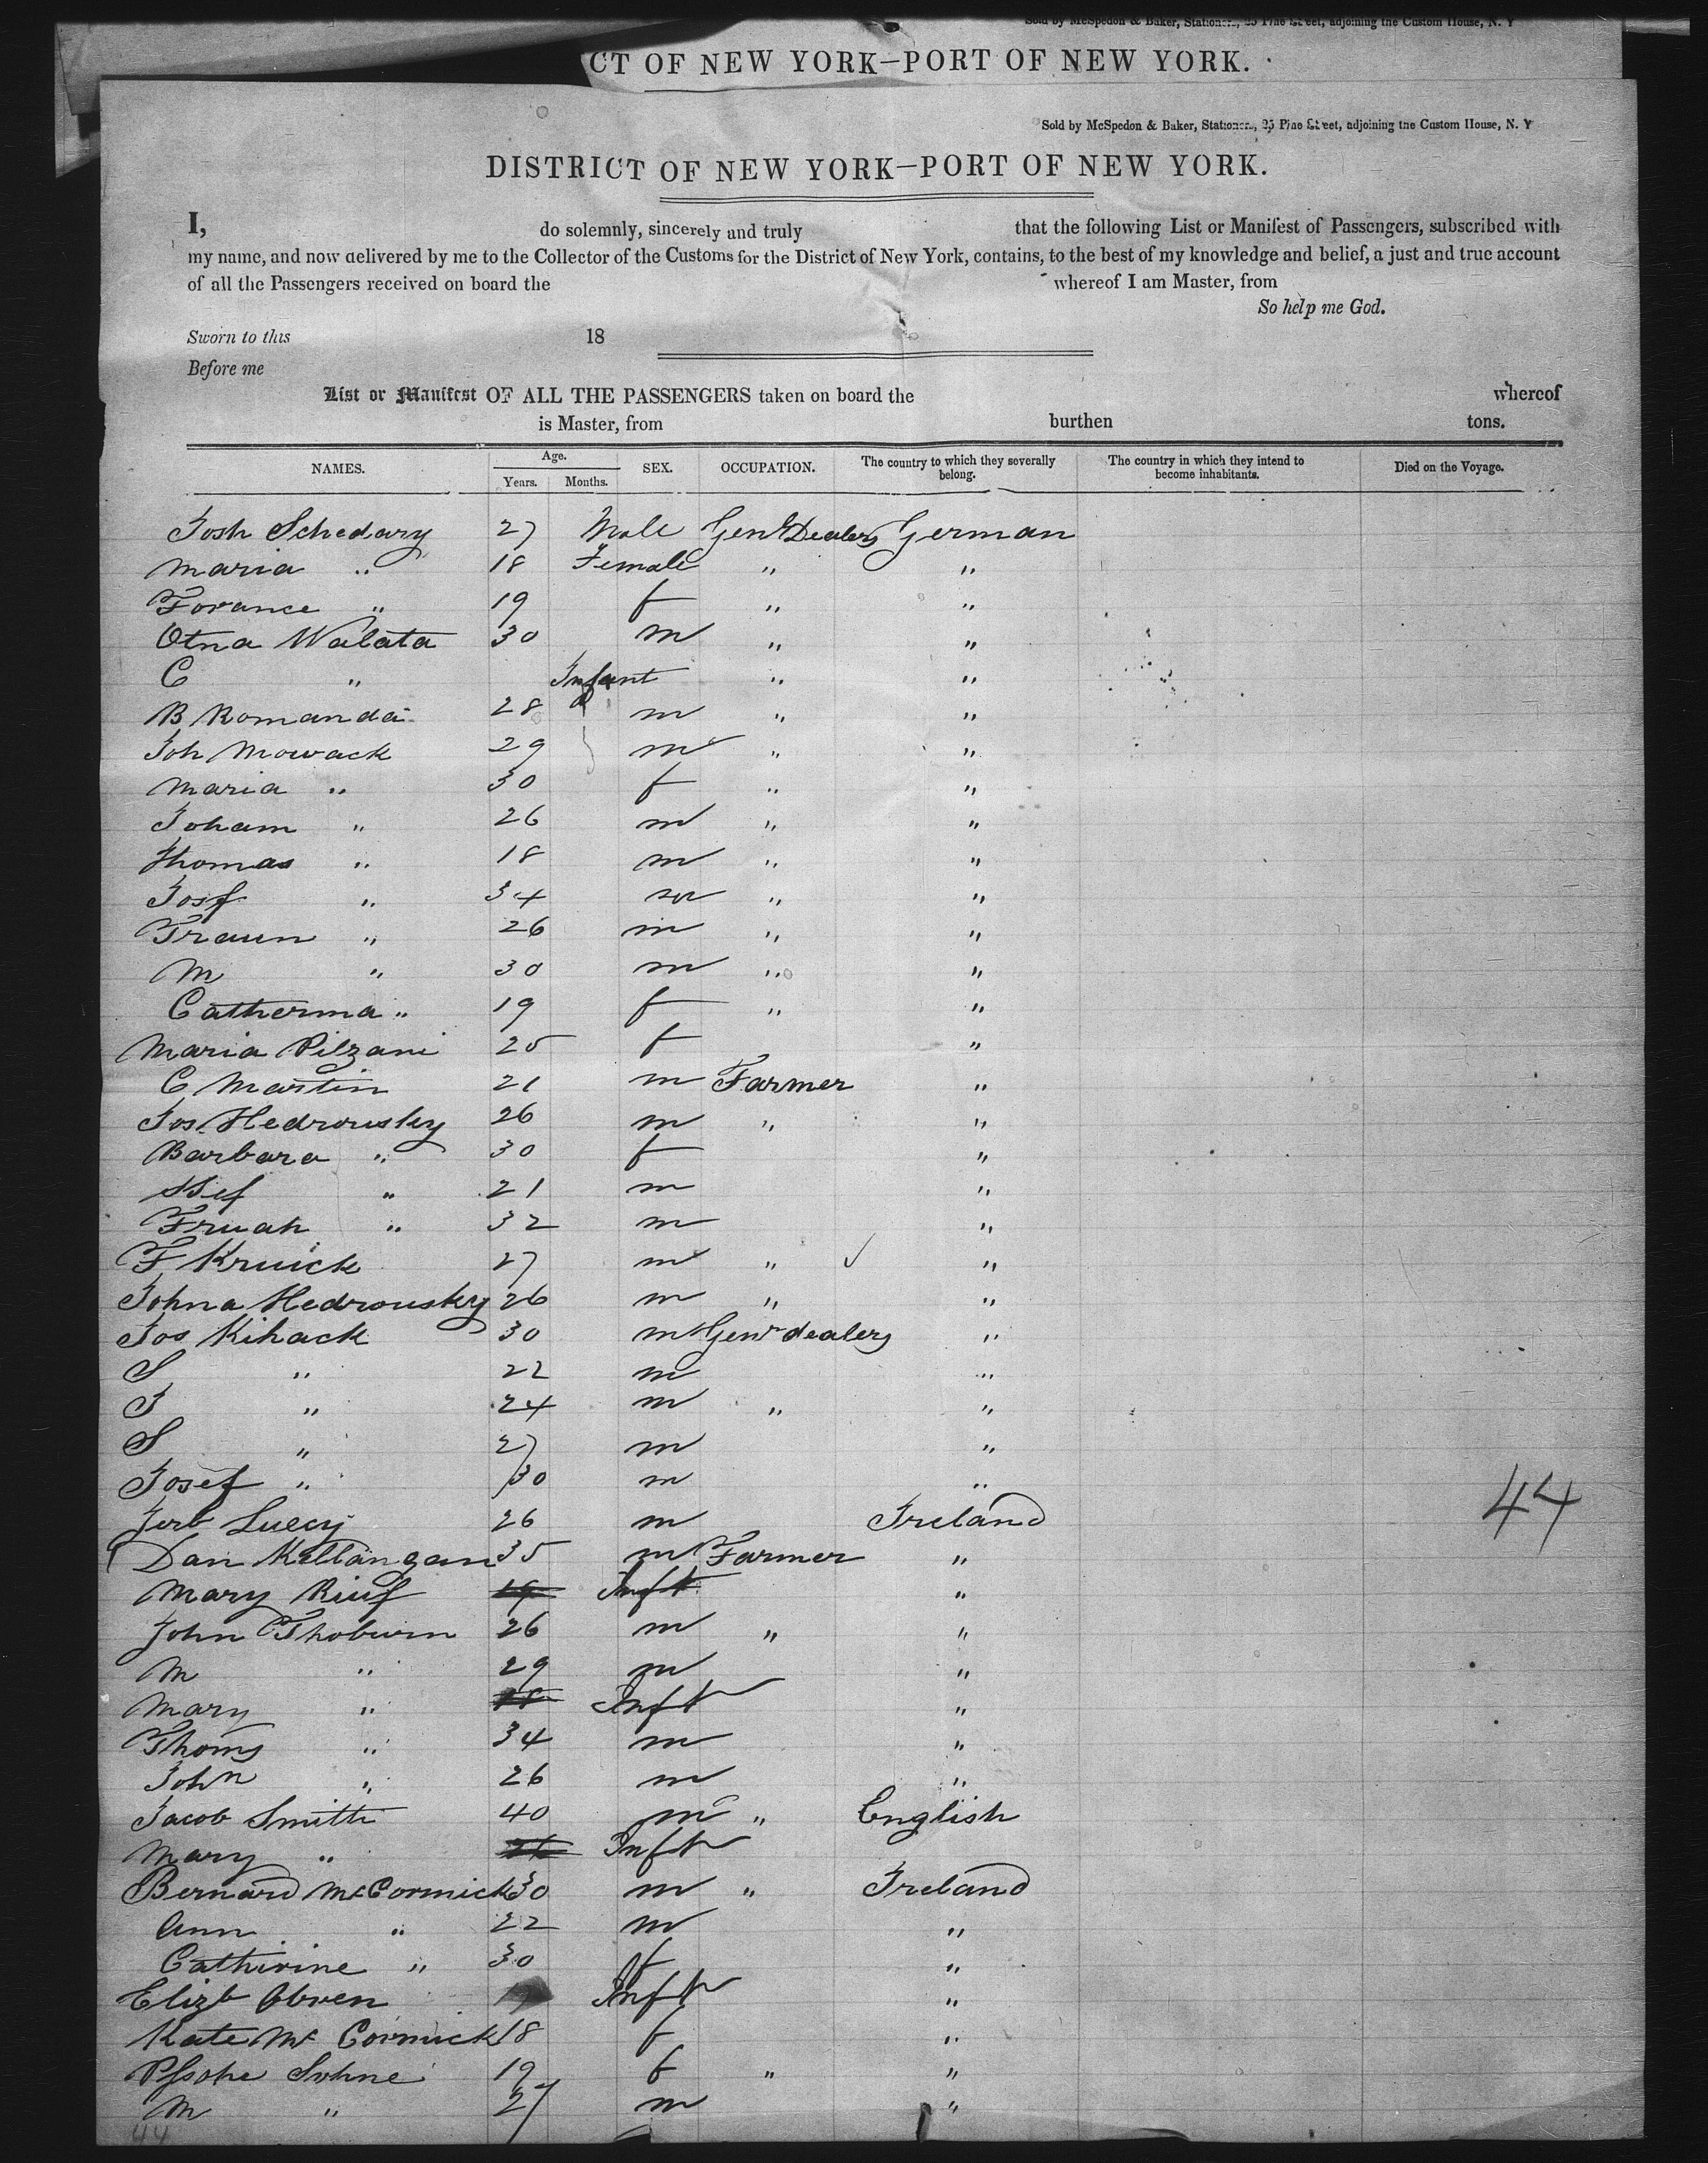 Sold by McSpedon & Baker, Stationers, 25 Pine Street, adjoining the Custom House, N. Y
CT OF NEW YORK—PORT OF NEW YORK.
Sold by McSpedon & Baker, Stationers, 25 Pine Street, adjoining the Custom House, N. Y
DISTRICT OF NEW YORK—PORT OF NEW YORK.
I, do solemnly, sincerely and truly that the following List or Manifest of Passengers, subscribed with
my name, and now delivered by me to the Collector of the Customs for the District of New York, contains, to the best of my knowledge and belief, a just and true account
of all the Passengers received on board the whereof I am Master, from
So help me God.
Sworn to this 18
Before me
List or Manifest OF ALL THE PASSENGERS taken on board the whereof
is Master, from burthen tons.
NAMES. Age. Years. Months. SEX. OCCUPATION. The country to which they severally belong. The country in which they intend to become inhabitants. Died on the Voyage.
Josh Schedary 27 Male Genl Dealers German
Maria " 18 Female " "
Forance " 19 f " "
Otna Walata 30 m " "
C " Infant " "
B Romanda 28 m " "
Joh Mowack 29 m " "
Maria " 30 f " "
Joham " 26 m " "
Thomas " 18 m " "
Josf " 34 m " "
Fraun " 26 m " "
M " 30 m " "
Catherma " 19 f " "
Maria Pilzani 25 f "
C Martin 21 m Farmer "
Jos Hedrousky 26 m " "
Barbara " 30 f "
" 21 m "
Fruah " 32 m "
F Kruick 27 m " ✓ "
Johna Hedrousky 26 m " "
Jos Kihack 30 m Genr dealers "
S " 22 m "
J " 24 m " "
S " 27 m "
Josef " 30 m "
Jerb Luecy 26 m Ireland
44
Dan Killangan 35 m Farmer "
Mary Riuf 19 Inft "
John Thoburn 26 m " "
M " 29 m "
Mary " 18 Inft "
Thoms " 34 m "
John " 26 m "
Jacob Smith 40 m " English
Mary " 26 Inft
Bernard McCormick 30 m " Ireland
Ann " 22 m "
Cathirine " 30 f "
Elizb Obren Inft "
Kate Mc Cormick 18 f "
Sohne 19 f " "
M " 27 m "
44